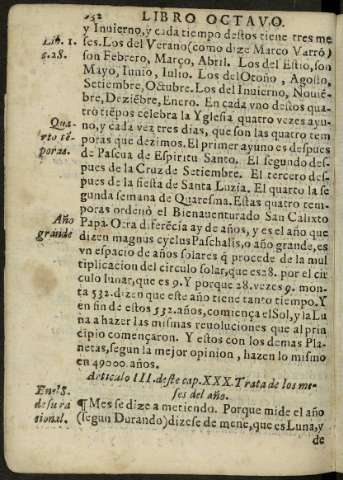 252 LIBRO OCTAVO.
y Inuierno, y cada tiempo destos tiene tres me
Lib. 1. ses. Los del Verano (como dize Marco Varrõ)
c.28. son Febrero, Março, Abril. Los del Estio, son
Mayo, Iunio, Iulio. Los del Otoño, Agosto,
Setiembre, Octubre. Los del Inuierno, Nouiẽ-
bre, Deziẽbre, Enero. En cada vno destos qua-
tro tiẽpos celebra la Yglesia quatro vezes ayu-
Qua- no, y cada vez tres dias, que son las quatro tem
rto tẽ- poras que dezimos. El primer ayuno es despues
poras. de Pascua de Espiritu Santo. El segundo des-
pues de la Cruz de Setiembre. El tercero des-
pues de la fiesta de Santa Luzia. El quarto la se
gunda semana de Quaresma. Estas quatro tem-
poras ordenó el Bienauenturado San Calixto
Año Papa. Otra diferẽcia ay de años, y es el año que
grande dizen magnus cyclus Paschalis, o año grande, es
vn espacio de años solares q̃ procede de la mul
tiplicacion del circulo solar, que es 28. por el cir
culo lunar, que es 9. Y porque 28. vezes 9. mon-
ta 532. dizen que este año tiene tanto tiempo. Y
en fin de estos 532. años, comiença el Sol, y la Lu
na a hazer las mismas reuoluciones que al prin
cipio començaron. Y estos con los demas Pla-
netas, segun la mejor opinion, hazen lo mismo
en 49000. años.
Articulo III. deste cap. XXX. Trata de los me-
ses del año.
En el S. ¶ Mes se dize a metiendo. Porque mide el año
de su ra (segun Durando) dizese de mene, que es Luna, y
cional. de